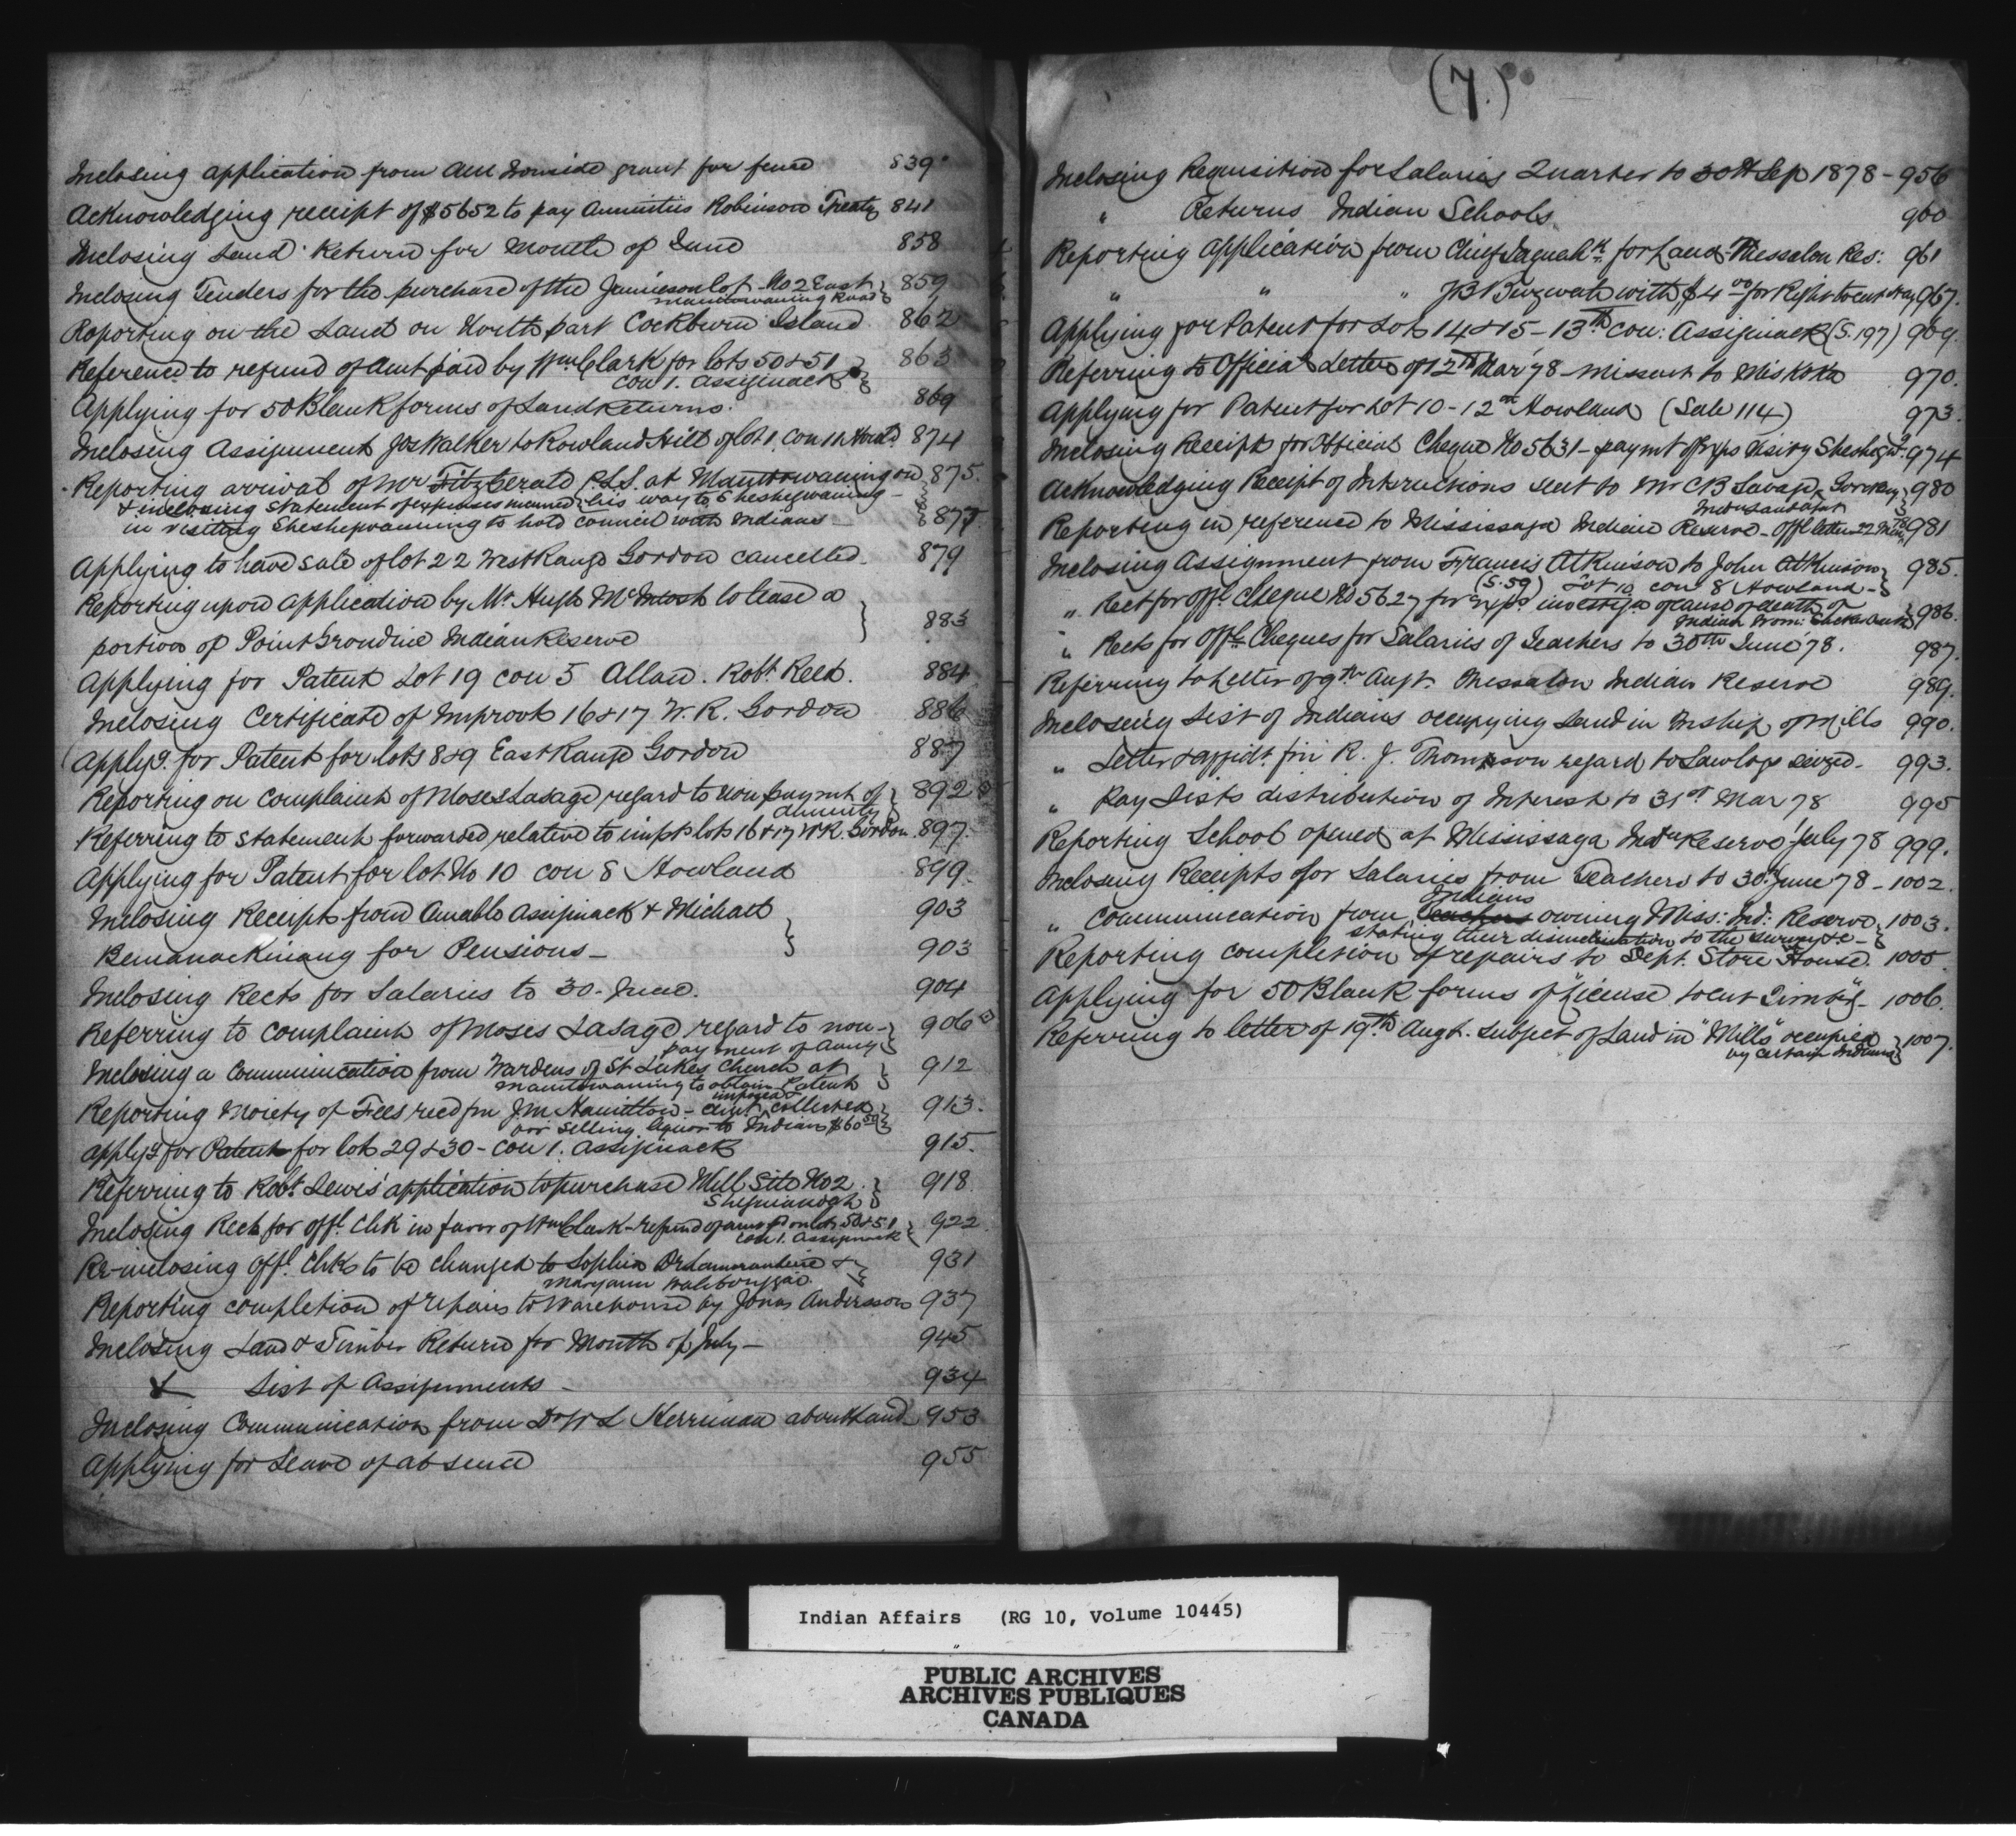 Inclosing application from Ironside grant for fence 839
Acknowledging receipt of $5652 to pay Annuities Robinson Treaty 841
Inclosing Land Return for Month of June 858
Inclosing Tenders for the purchase of the Jamieson lot No 2 East 859
Manitowaning Road
Reporting on the Land on North part Cockburn Island 862
Reference to refund of amt paid by Wm Clark for lots 50 & 51 863
Con 1. Assiginack
Applying for 50 Blank forms of Land Returns. 869
Inclosing Assignment Jos Walker to Rowland Hill of lot 1 Con 11 Howld 874
Reporting arrival of Mr Fitzgerald P.L.S. at Manitowaning on 875
& inclosing statement of expenses incurred his way to Sheshegwaning
in visiting Sheshegwaning to hold council with Indians 877
Applying to have sale of lot 22 West Range Gordon cancelled 879
Reporting upon application by Mr Hugh McIntosh to lease a
portion of Point Grondine Indian Reserve 883
Applying for Patent Lot 19 con 5 Allan. Robt. Reed. 884
Inclosing Certificate of Improvts 16 & 17 W.R. Gordon 886
Applyg. for Patent for lots 8 & 9 East Range Gordon 887
Reporting on complaint of Moses Lasage regard to non paymt of 892
annuity
Referring to statement forwarded relative to impts lots 16 & 17 W.R. Gordon 897.
Applying for Patent for lot No 10 con 8 Howland 899
Inclosing Receipts from Amable Assiginack & Michael 903
Bemanackinang for Pensions 903
Inclosing Rects for Salaries to 30 June. 904
Referring to complaint of Moses Lasage regard to non- 906
payment of Annuy
Inclosing a communication from Wardens of St Lukes Church at 912
Manitowaning to obtain Patent
imposed &
Reporting Moiety of Fees recd fm J.M. Hamilton - amt collected 913.
for selling liquor to Indians $60 50
Applyg for Patent for lots 29 & 30 - Con 1. Assiginack 915.
Referring to Robt Lewis' application to purchase Mill Site No 2 918
Sheguiandah
Inclosing Rect for offl. Chk in favor of Wm Clark - refund of amt pd on lots 50 & 51 922
Con 1. Assiginack
Re-inclosing Offl. Chks to be changed to Sophia Delamorandiere & 931
Maryann
Reporting completion of repairs to Warehouse by Jonas Anderson 937
Inclosing Land & Timber Return for Month of July - 945
& List of Assignments - 934
Inclosing Communication from Dr W L Herriman about Land 953
Applying for Leave of absence 955
(7.)
Inclosing Requisition for Salaries Quarter to 30th Sep 1878 - 956
" Returns Indian Schools 960
Reporting application from Chief for Land Thessalon Res: 961
" " " J B with $4 00 for Right to cut Hay 967.
Applying for Patent for Lots 14 & 15 - 13th con: Assiginack (S. 197) 969.
Referring to Official Letter of 12th Mar '78 - missent to Miskoka 970.
Applying for Patent for Lot 10 - 12th Howland (Sale 114) 973.
Inclosing Receipt for Official Cheque No 5631 - paymt of exps visitg Sheshegwg 974
Acknowledging Receipt of Instructions sent to Mr C B Savage 980
Indn Land Agt
Reporting in reference to Mississaga Indian Reserve - Offl letter 22 981
Inclosing Assignment from Francis Atkinson to John Atkinson 985.
(S. 59) Lot 10 con 8 Howland -
" Rect for offl. Cheque No 5627 for exps investign of cause of death of 986.
Indian
" Rects for Offl. Cheques for Salaries of Teachers to 30th June '78. 987.
Referring to Letter of 9th Augt. Thessalon Indian Reserve 989.
Inclosing List of Indians occupying Land in Tnship of Mills 990.
" Letter & affidt. fm R. J. Thompson regard to Sawlogs seized - 993.
" Pay Lists distribution of Interest to 31st Mar 78 995
Reporting School opened at Mississaga Indn Reserve 1 July 78 999.
Inclosing Receipts for Salaries from Teachers to 30 June 78 - 1002.
Indians
" Communication from Teachers owning Miss: Ind: Reserve 1003.
stating their disinclination to the survey &c -
Reporting completion of repairs to Dept. Store House. 1005
Applying for 50 Blank forms of "License to cut Timber" - 1006.
Referring to letter of 19th Augt. subject of Land in "Mills" occupied 1007.
by certain Indians
Indian Affairs (RG 10, Volume 10445)
PUBLIC ARCHIVES
ARCHIVES PUBLIQUES
CANADA